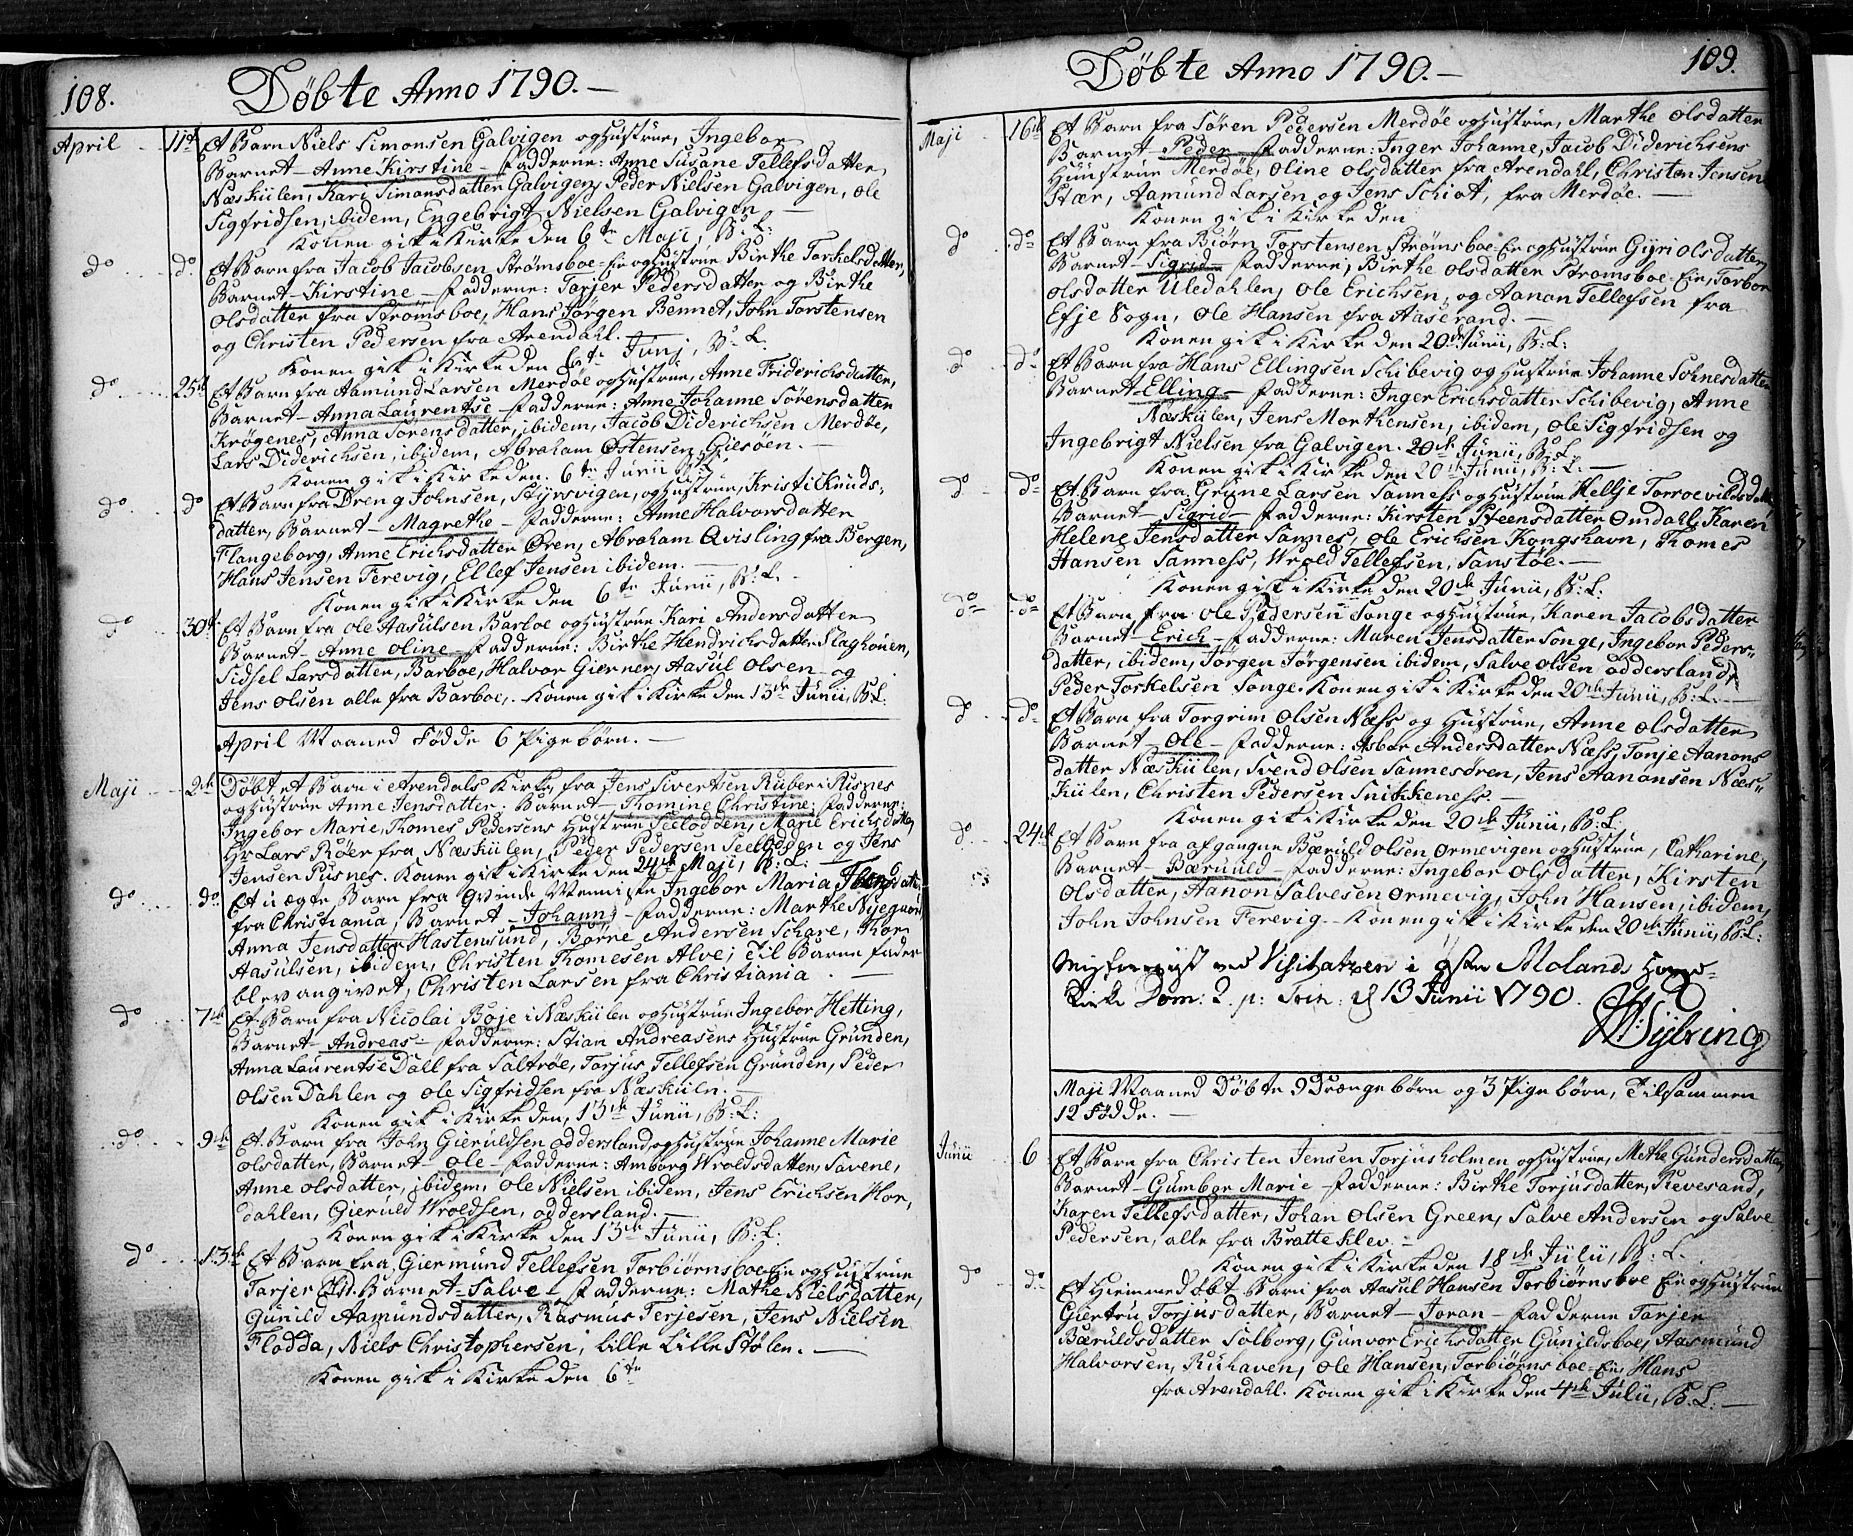 108.
Döbte Anno 1790.—
April 11te Et Barn Niels Simonsen Galvigen oghustrue, Ingebor
Barnet — Anne Kirstine — Fadderne: Anne Susane Tellefsdatter
Næskiilen, Kari Simonsdatter Galvigen, Peder Nielsen Galvigen, Ole
Sigfridsen, ibidem, Engebrigt Nielsen Galvigen —
Konen gik i Kirke den 6te Maji, B: L:
do do Et Barn fra Jacob Jacobsen Strömsboe-Eie oghustrue Birthe Torkelsdatter,
Barnet — Kirstine — Fadderne: Tarjer Pedersdatter og Birthe
Olsdatter fra Strömsboe, Hans Jörgen Bennet, John Torstensen
og Christen Pedersen fra Arendahl.
Konen gik i Kirke den 6te Junj, B: L.
do 25te Et Barn fra Aamund Larsen Merdöe oghustrue, Anne Friderichsdatter,
Barnet — Anna Laurentse — Fadderne: Anne Johanne Sörensdatter
Krögenes, Anna Sörensdatter, ibidem, Jacob Diderichsen Merdöe,
Lars Diderichsen, ibidem, Abraham Östensen Gilsöen. —
Konen gik i Kirke den. 6te Junii
do do Et Barn fra Dreng Johnsen, Styrsvigen, oghustrue, Kristi Knuds:
datter, Barnet — Magrethe — Fadderne: Anne Halvorsdatter
Flangeborg, Anne Erichsdatter Ören, Abraham Qvisling fra Bergen,
Hans Jensen Ferevig, Ellef Jensen ibidem. —
Konen gik i Kirke den 6te Junii, B: L.
do 30te Et Barn fra Ole Aasulsen Barboe oghustrue Kari Andersdatter
Barnet — Anne Oline — Fadderne: Birthe Hendrichsdatter Flaghouen,
Sidsel Larsdatter, Barboe, Halvor Gierner, Aasul Olsen og
Jens Olsen alle fra Barboe, — Konen gik i Kirke den 13de Junii, B: L.
April Maaned Födde 6 Pigebörn. —
Maji 2de Döbt et Barn i Arendals Kirke, fra Jens Sivertsen Ruber i Risnes
oghustrue Anne Jensdatter. Barnet — Thomine Christine; Fadderne:
Ingebor Marie, Thomes Pedersens Hustrue Seelödden, Marie Erichsdatter,
Hr Lars Röer fra Næskiilen, Peder Pedersen Seelödden og Jens
Jensen Pusnes. Konen gik i Kirke den 24de Maji, B: L: —
do do Et uægte Barn fra Qvinde Menniske Ingebor Maria
fra Christiania, Barnet — Johann — Fadderne: Marthe
Anna Jensdatter Hastensund, Börne Andersen Schare, Thor
Aasulsen, ibidem, Christen Thomesen Alve; Til Barne fader
blev angivet, Christen Larsen fra Christiania. —
do 7de Et Barn fra Nicolai Boje i Næskiilen oghustrue Ingebor Hetting,
Barnet — Andreas — Fadderne: Stian Andreasens Hustrue Grunden,
Anna Laurentse Dall fra Saltröe, Torjus Tellefsen Grunden, Peder
Olsen Dahlen og Ole Sigfridsen fra Næskiiln.
Konen gik i Kirke den, 13de Junii, B: L:
do 9de Et Barn fra John Gieruldsen oddersland oghustrue Johanne Marie
Olsdatter, Barnet — Ole — Fadderne: Amborg Wroldsdatter, Savene,
Anne Olsdatter, ibidem, Ole Nielsen ibidem, Jens Erichsen Hor,
dahlen, Gieruld Wroldsen, oddersland. —
Konen gik i Kirke den 13de Junii, B: L:
do 13de Et Barn fra, Giermund Tellefsen Torbiörnsboe Eie oghustrue
Tarjer Barnet — Salve — Fadderne: Mathe Nielsdatter,
Gunild Aamundsdatter, Rasmus Terjesen, Jens Nielsen
Flodda, Niels Christophersen, lille Lille Stölen. —
Konen gik i Kirke den 6te
109.
Döbte Anno 1790.—
Maji 16de Et Barn fra Sören Pedersen Merdöe oghustrue, Marthe Olsdatter
Barnet — Peder — Fadderne: Inger Johanne, Jacob Diderichsens
Huustrue Merdöe, Oline Olsdatter fra Arendahl, Christen Jensen
Stær, Aamund Larsen og Jens Schiöt, fra Merdöe. —
Konen gik i Kirke den
do do Et Barn fra Biörn Torstensen Strömsboe-Eie oghustrue Gyri Olsdatter
Barnet — Sigrid — Fadderne; Birthe Olsdatter Strömsboe-Eie, Torbor
Olsdatter Uledahlen, Ole Erichsen, og Aanon Tellefsen fra
Efje Sogn, Ole Hansen fra Aaserand. —
Konen gik i Kirke den 20de Junii, B: L:
do do Et Barn fra Hans Ellingsen Schibevig og hustrue Johanne Johnesdatter
Barnet Elling — Fadderne: Inger Erichsdatter Schibevig, Anne
Næskiilen, Jens Morthensen, ibidem, Ole Sigfridsen og
Ingebrigt Nielsen fra Galvigen. 20de Junii, B: L.
Konen gik i Kirke den 20de Junii, B: L: —
do do Et Barn fra Grune Larsen Sanness oghustrue Hellje Torroevildsdatter
Barnet — Sigrid — Fadderne: Kirsten Steensdatter Omdahl, Karen
Helene Jensdatter Sannes, Ole Erichsen Kongshavn, Thomes
Hansen Sanness, Wrold Tellefsen, Sanstöe. —
Konen gik i Kirke den 20de Junii, B: L:
do do Et Barn fra Ole Pedersen Songe oghustrue, Karen Jacobsdatter
Barnet — Erich — Fadderne: Maren Jensdatter Songe, Ingebor Peders-
datter, ibidem, Jörgen Jörgensen ibidem, Salve Olsen oddersland,
Peder Torkelsen Songe. Konen gik i Kirke den 20de Junii, B: L. —
do do Et Barn fra Torgrim Olsen Næss og Hustrue, Anne Olsdatter
Barnet — Ole — Fadderne: Asbor Andersdatter Næss, Tonje Aanons
datter Næskiilen, Svend Olsen Sannesören, Jens Aanonsen Næs-
kiilen, Christen Pedersen Snikkeness. —
Konen gik i Kirke den 20de Junii, B: L.
do 24de Et Barn fra afgangne Bæruld Olsen Ormevigen oghustrue, Catharine,
Barnet — Bæruuld — Fadderne: Ingebor Olsdatter, Kirsten
Olsdatter, Aanon Salvesen Ormevig, John Hansen, ibidem,
John Johnsen Ferevig. — Konen gik i Kirke den 20de Junii, B: L:
ved Visitatzen i Molands
Kirke Dom: 2. p: Trin: d 13 Junii 1790.
Maji Maaned Döbte 9 Drængebörn og 3 Pigebörn, Tilsammen
12 Födde. —
Junii 6 Et Barn fra Christen Jensen Torjusholmen oghustrue, Methe Gundersdatter,
Barnet — Gumbor Marie — Fadderne: Birthe Torjusdatter, Revesand,
Karen Tellefsdatter, Johan Olsen Green, Salve Andersen og Salve
Pedersen, alle fra Bratteklev. —
Konen gik i Kirke den 18de Julii, B: L.
do do Et Hiemmedöbt Barn fra Aasul Hansen Torbiörnsboe Eie oghustrue
Giertru Torjusdatter, Barnet — Joran — Fadderne Tarjer
Bæruldsdatter Solborg, Gunvor Erichsdatter Gunildsboe, Aasmund
Halvorsen, Riihaven, Ole Hansen, Torbiörnsboe-Eie, Hans
fra Arendahl. Konen gik i Kirke den 4de Julii, B: L: —